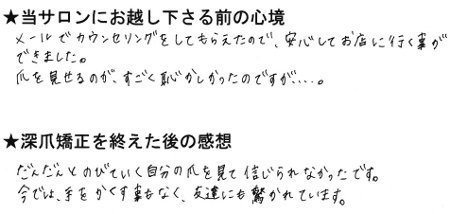 ★当サロンにお越し下さる前の心境
メールでカウンセリングをしてもらえたので、安心してお店に行く事が
できました。
爪を見せるのが、すごく恥かしかったのですが…。
★深爪矯正を終えた後の感想
だんだんとのびていく自分の爪を見て信じられなかったです。
今では、手をかくす事もなく、友達にも驚かれています。